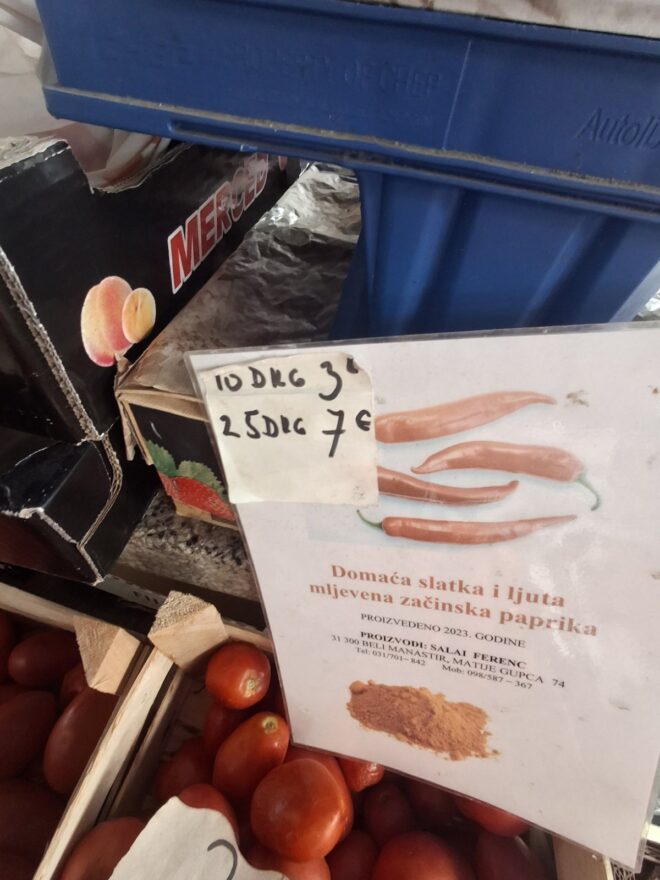 PROPERTY OF CHEP
MERCED
10 DKG 3€
25DKG 7€
Domaća slatka i ljuta
mljevena začinska paprika
PROIZVEDENO 2023. GODINE
PROIZVODI: SALAI FERENC
31 300 BELI MANASTIR, MATIJE GUPCA 74
Tel: 031/701-842 Mob: 098/587-367